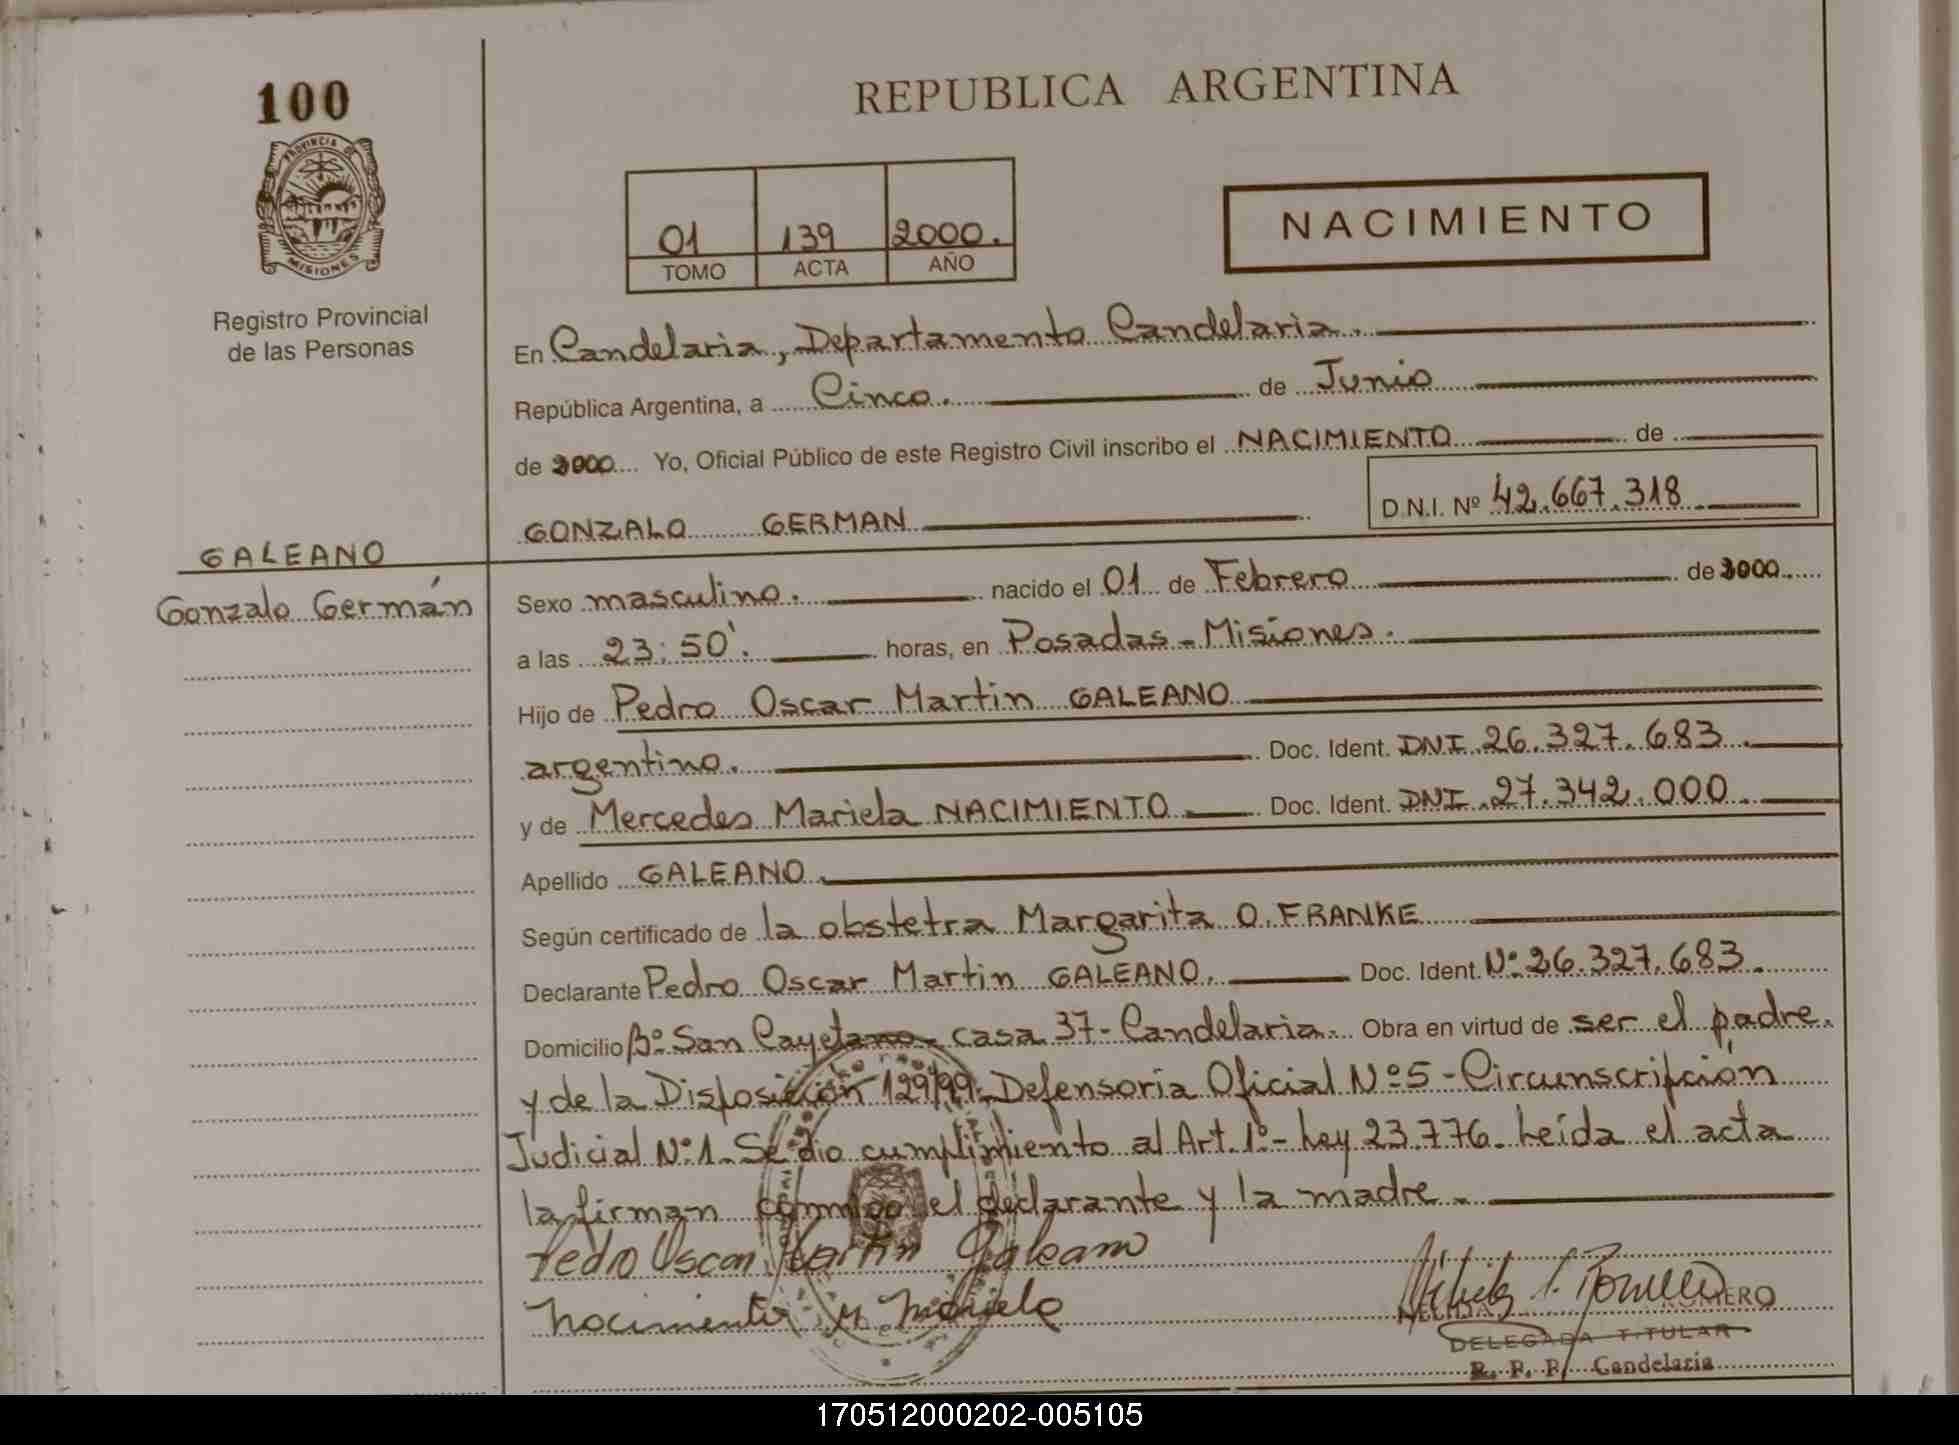 100
PROVINCIA DE
MISIONES
Registro Provincial
de las Personas
GALEANO
Gonzalo Germán
REPUBLICA ARGENTINA
01 139 2000.
TOMO ACTA AÑO
NACIMIENTO
En Candelaria, Departamento Candelaria.
República Argentina, a Cinco. de Junio
de 2000 Yo, Oficial Público de este Registro Civil inscribo el NACIMIENTO de
GONZALO GERMAN D.N.I. Nº 42.667.318
Sexo masculino. nacido el 01 de Febrero de 2000
a las 23:50'. horas, en Posadas - Misiones.
Hijo de Pedro Oscar Martin GALEANO
argentino. Doc. Ident. DNI 26.327.683.
y de Mercedes Mariela NACIMIENTO Doc. Ident. DNI 27.342.000.
Apellido GALEANO.
Según certificado de la obstetra Margarita O. FRANKE
Declarante Pedro Oscar Martin GALEANO. Doc. Ident. Nº 26.327.683.
Domicilio Bº San Cayetano casa 37 - Candelaria. Obra en virtud de ser el padre.
y de la Disposición 129/99 - Defensoría Oficial Nº 5 - Circunscripción
Judicial Nº 1. Se dio cumplimiento al Art. 1º - Ley 23.776. Leída el acta
la firman conmigo el declarante y la madre.
Pedro Oscar Martin Galeano
Nacimiento M. Mariela
ROMERO
DELEGADA TITULAR
R. P. P. Candelaria
170512000202-005105